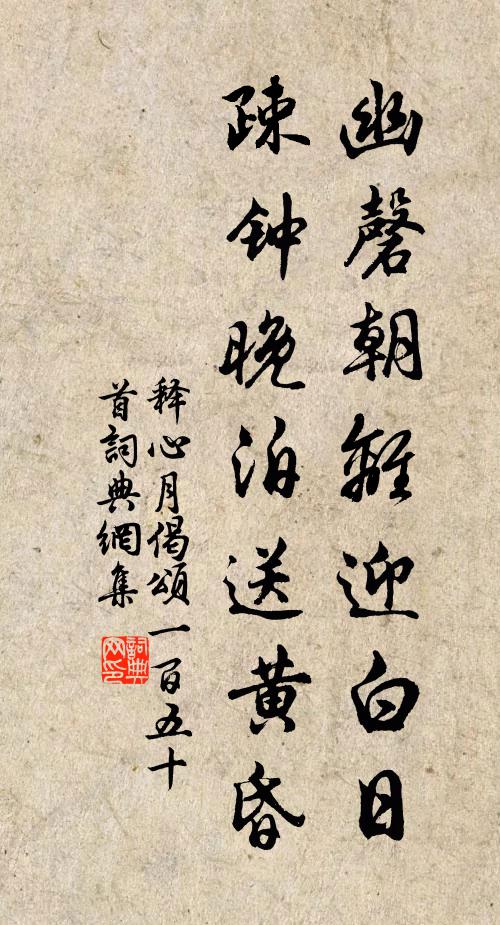 幽磬朝離迎白日
疎钟晚泊送黄昏
释心月偈頌一百五十
首詞典網集
詞典
网印